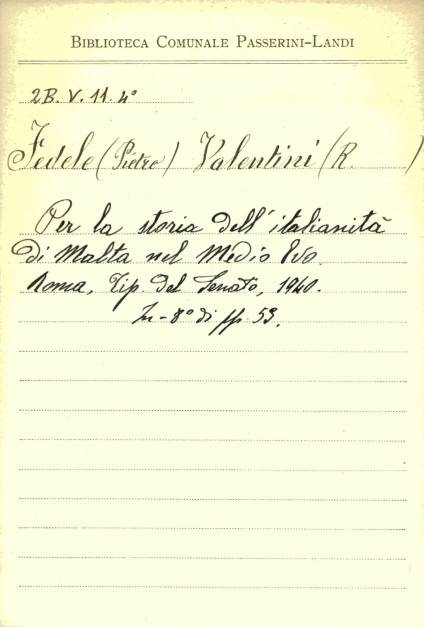 BIBLIOTECA COMUNALE PASSERINI-LANDI
2B. V. 11. 4°
Fedele (Pietro) Valentini (R. )
Per la storia dell'italianità
di Malta nel Medio Evo.
Roma, Tip. del Senato, 1940.
In-8° di pp. 53.